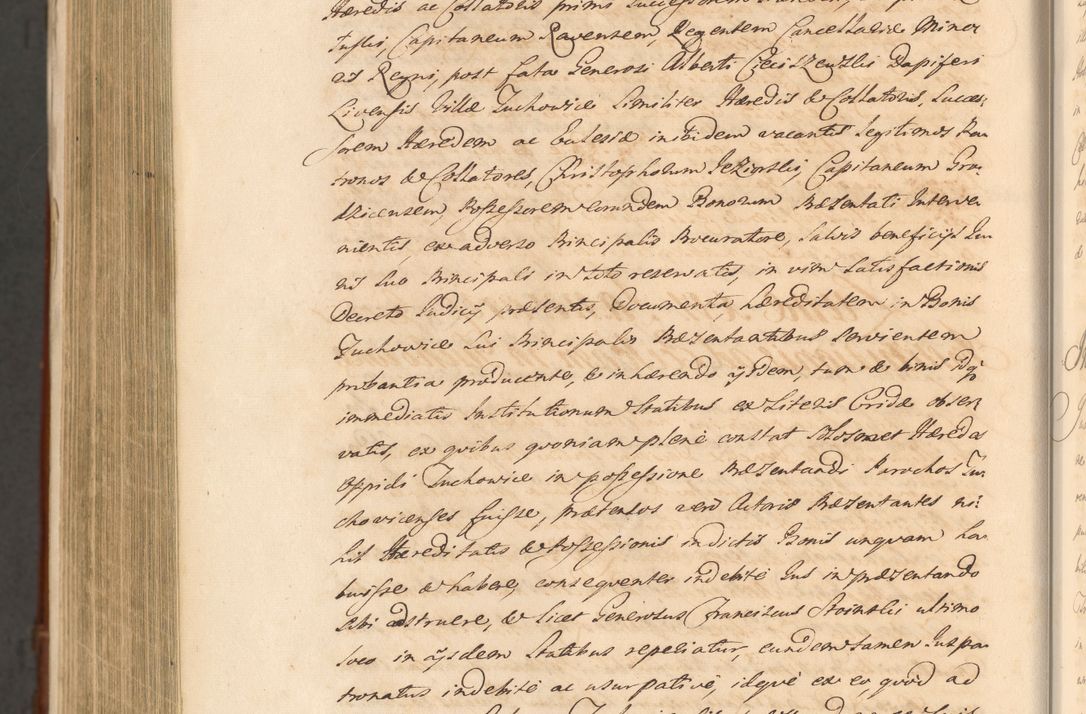 Hæredis ac Collatoris primi Successorem
Tuslis, Capitaneum Ravensem, Regentem Cancellariæ Mino
ris Regni, post fata Generosi Alberti Cieciszewski Dapiferi
Livensis Villæ Tuchowicz similiter Hæredis & Collatoris, Succes,
sorem Hæredem ac Eclesiæ in ibidem vacantis legitimos Pa
tronos & Collatores, Christophorum Jezierski, Capitaneum Gra,
dzicensem, Possessorem eorundem Bonorum Præsentati Interve
nientis, ex adverso Principalis Procuratore, salvis beneficijs Iu
ris suo Principali in toto reservatis, in vim satisfactionis
Decreto Iudicij præsentis, Documenta, hæreditatem in Bonis
Tuchowice sui Principalis Præsentantibus servientem
probantia producente, & inhærendo ijsdem, tum & binis
immediatis Institutionum Statibus ex Literis Cridæ obser,
vatis, ex quibus quoniam plene constat solosmet Hæredes
oppidi Tuchowice in possessione Præsentandi Parochos Tu,
chovicenses fuisse, prætensos vero Actoris Præsentantes ni,
hil Hæreditatis & Possessionis in dictis Bonis unquam ha,
buisse & habere, consequenter indebite Ius in præsentando
sibi adstruere, & licet Generosus Franciscus Stoinski ultimo
loco in ijsdem Statibus reperiatur, eundem tamen Ius pa,
tronatus indebite ac usurpative, idque ex eo, quod ad